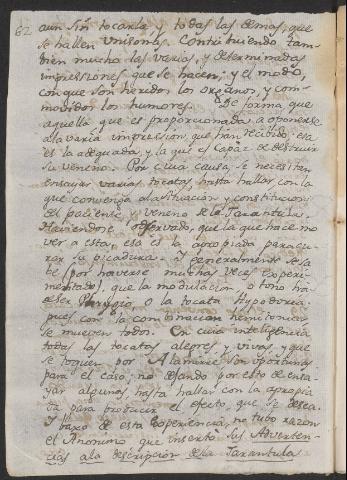 82 aun sin tocarla y todas las demas, que
se hallen Unisonas. Contribuiendo tam-
bien mucho las varias, y determinadas
impressiones que se hacen; y el modo,
con que son heridos los organos, y com-
movidos los humores. De forma que
aquella que es proporcionada a oponerse
a la varia impression, que han recibido, esa
es la adequada, y la que es capaz de destruir
su veneno. Por cuia causa, se necesitan
ensayar varias tocatas, hasta hallar con la
que convenga a la situacion y constitucion
del paciente, y veneno de la Tarantula.
Haviendose observado, que la que hace mo-
ver a esta, esa es la apropiada para cu-
rar su picadura. Y generalmente se sa-
be (por haverse muchas veces experi-
mentado), que la modulacion, o tono ha
de ser Phrygio, o la tocata Hypodoria,
pues con la combinacion
se mueven todos. En cuia inteligencia
todas las tocatas alegres y vivas, y que
se toquen por Alamirre son oportunas
para el caso, no dejando por esto de ensa-
yar algunas hasta hallar con la apropia-
da para producir el efecto, que se desea.
Y baxo de esta experiencia, no tubo razon
el Anonimo que insertó sus Adverten-
cias a la descripcion de la Tarantula